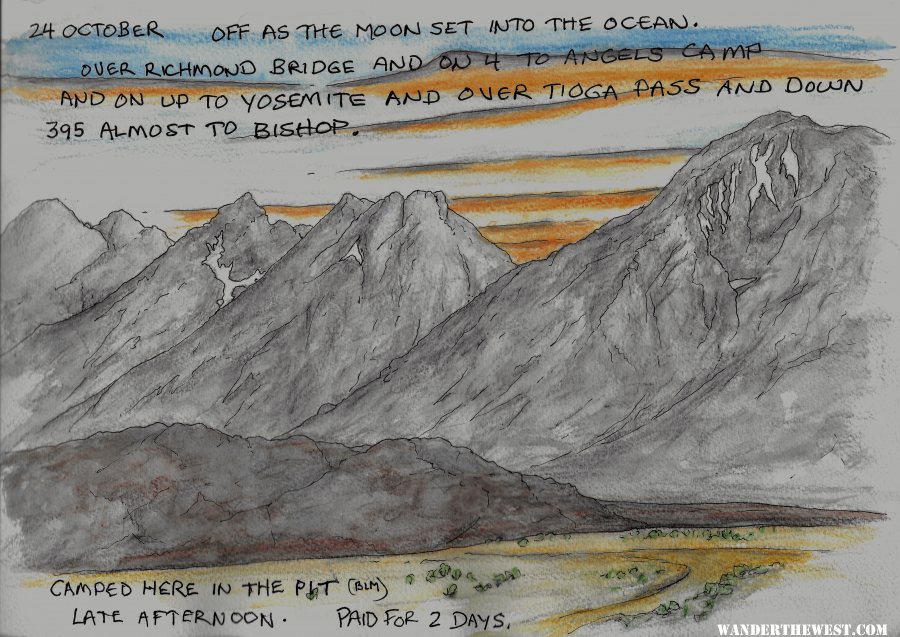 24 OCTOBER OFF AS THE MOON SET INTO THE OCEAN.
OVER RICHMOND BRIDGE AND ON 4 TO ANGELS CAMP
AND ON UP TO YOSEMITE AND OVER TIOGA PASS AND DOWN
395 ALMOST TO BISHOP.
CAMPED HERE IN THE PIT (BLM)
LATE AFTERNOON. PAID FOR 2 DAYS.
WANDERTHEWEST.COM